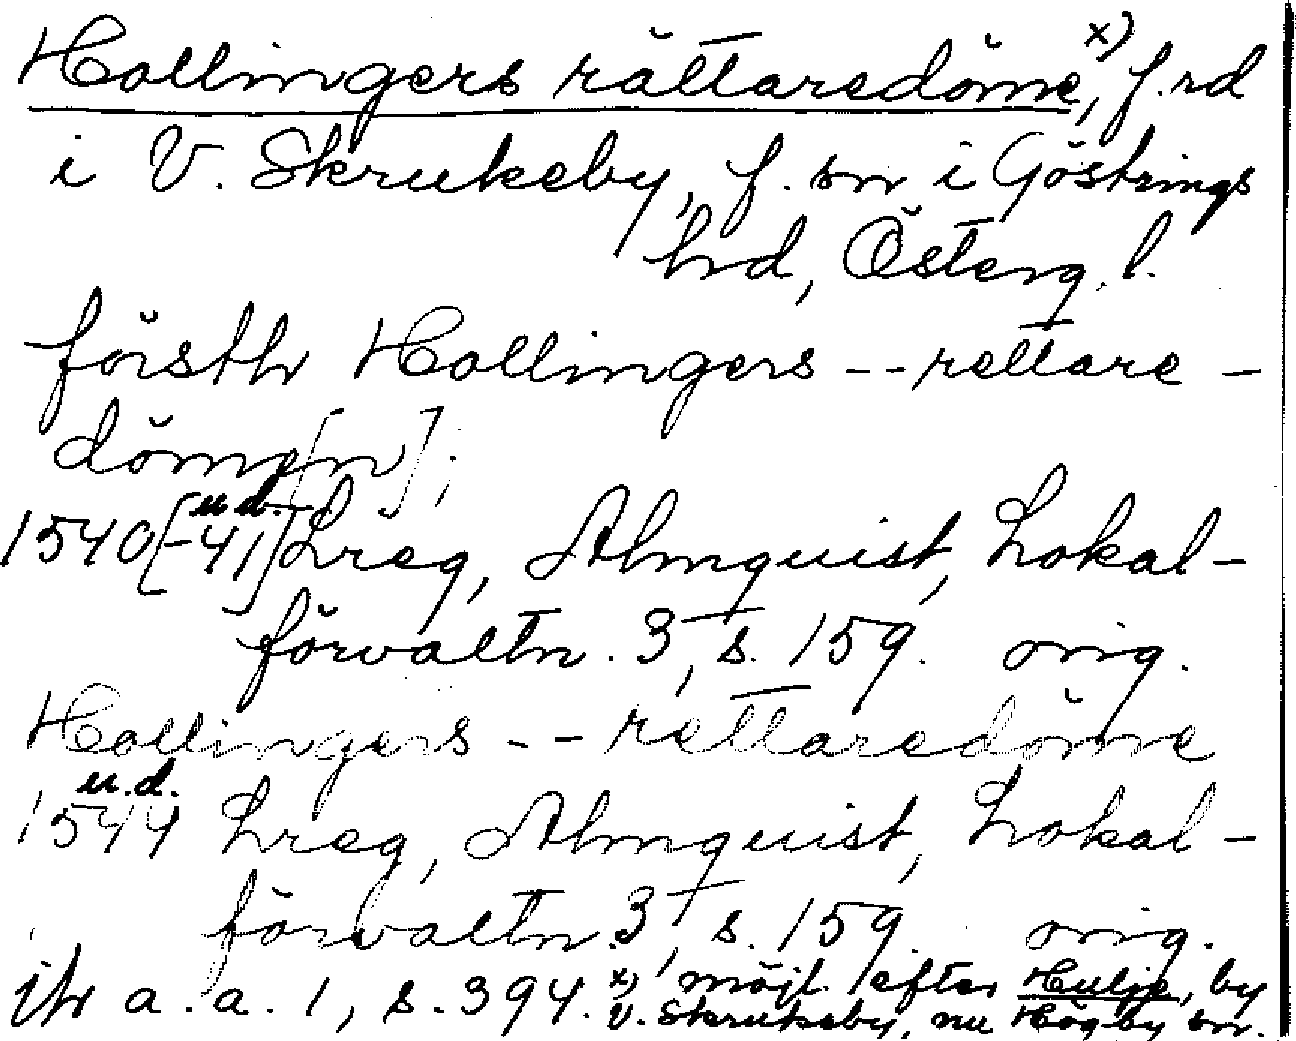 Hollingers rättaredöme,x) f.rd
i V. Skrukeby, f. sn i Göstrings
hrd, Österg. l.
försthr Hollingers -- rettare-
döme[n];
1540[-41] u.d. Lreg, Almquist, Lokal-
förvaltn. 3, s. 159. orig.
Hollingers -- rettaredöme
u.d.
1544 Lreg, Almquist, Lokal-
förvaltn. 3, s. 159. orig.
jfr a. a. 1, s. 394. x) möjl. efter Hulje, by
V. Skrukeby, nu Högby sn.